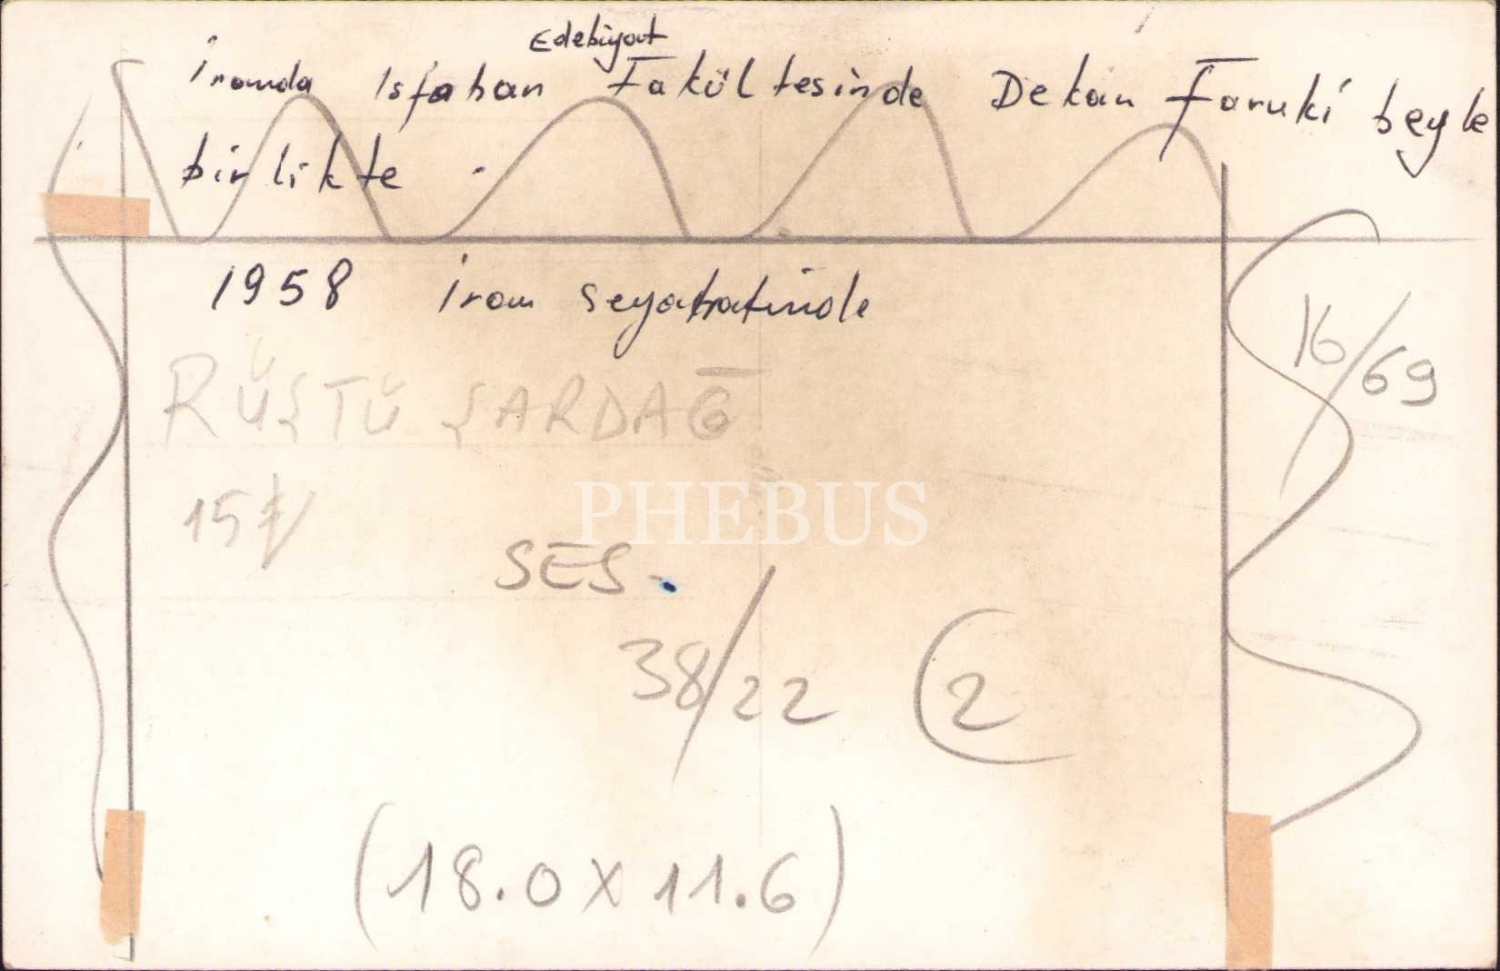 Edebiyat
İranda Isfahan Fakültesinde Dekan Faruki beyle
birlikte.
1958 İran seyahatinde
16/69
RÜŞTÜ ŞARDAĞ
PHEBUS
SES.
38/22 2
(18.0 X 11.6)